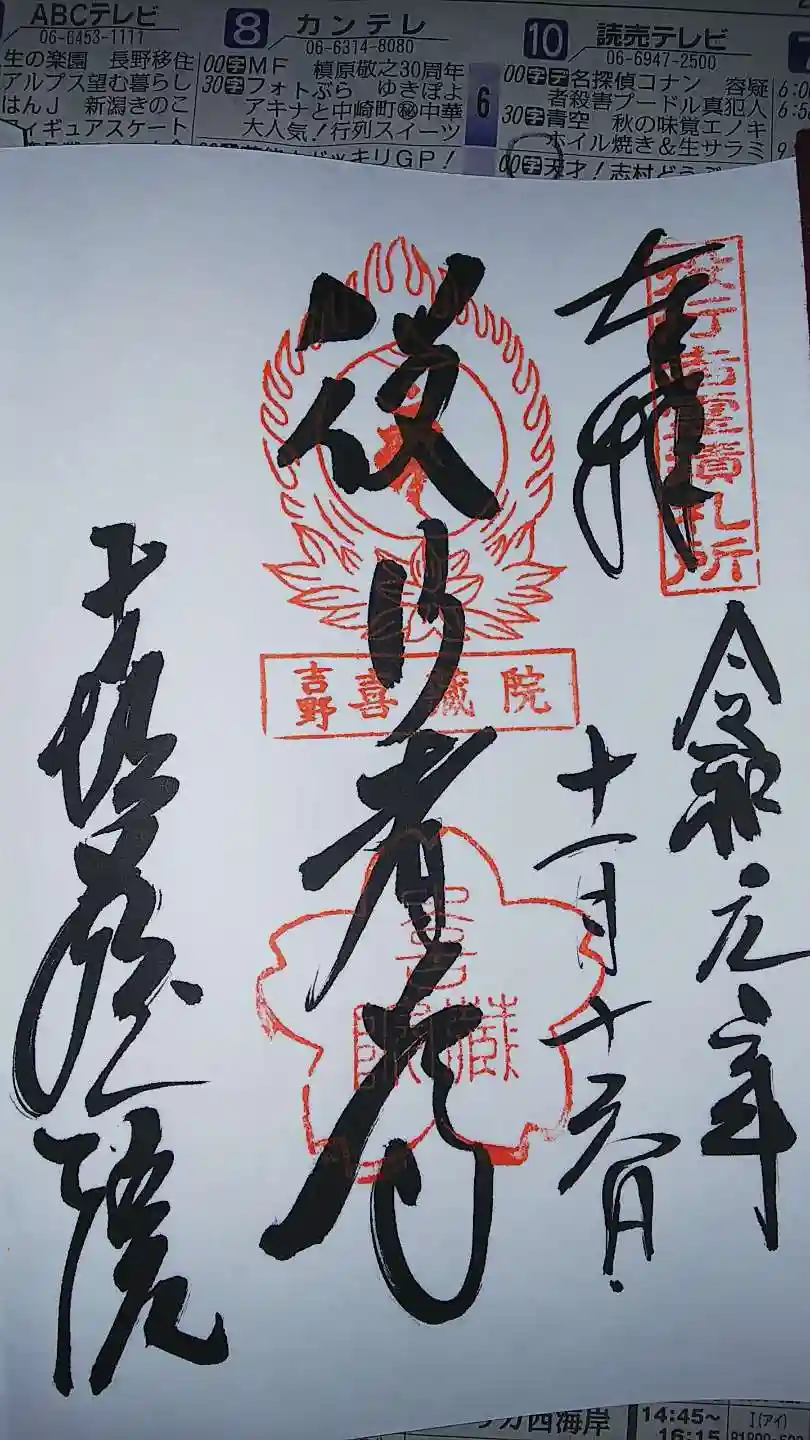 ABCテレビ
06-6453-1111
生の楽園 長野移住
アルプス望む暮らし
はんJ 新潟きのこ
ィギュアスケート
8 カンテレ
06-6314-8080
00字MF 槇原敬之30周年
30字フォトぶら ゆきぽよ
アキナと中崎町㊙中華
大人気!行列スイーツ
ッキリGP!
6
10 読売テレビ
06-6947-2500
00字デ名探偵コナン 容疑
者殺害プードル真犯人
30字青空 秋の味覚エノキ
ホイル焼き&生サラミ
00字天才!志村ど
奉拝
役行者霊蹟札所
令和元年
十一月十六日
役行者
吉野喜蔵院
喜蔵院
喜蔵院
リカ西海岸
14:45~
16:15
I(アイ)